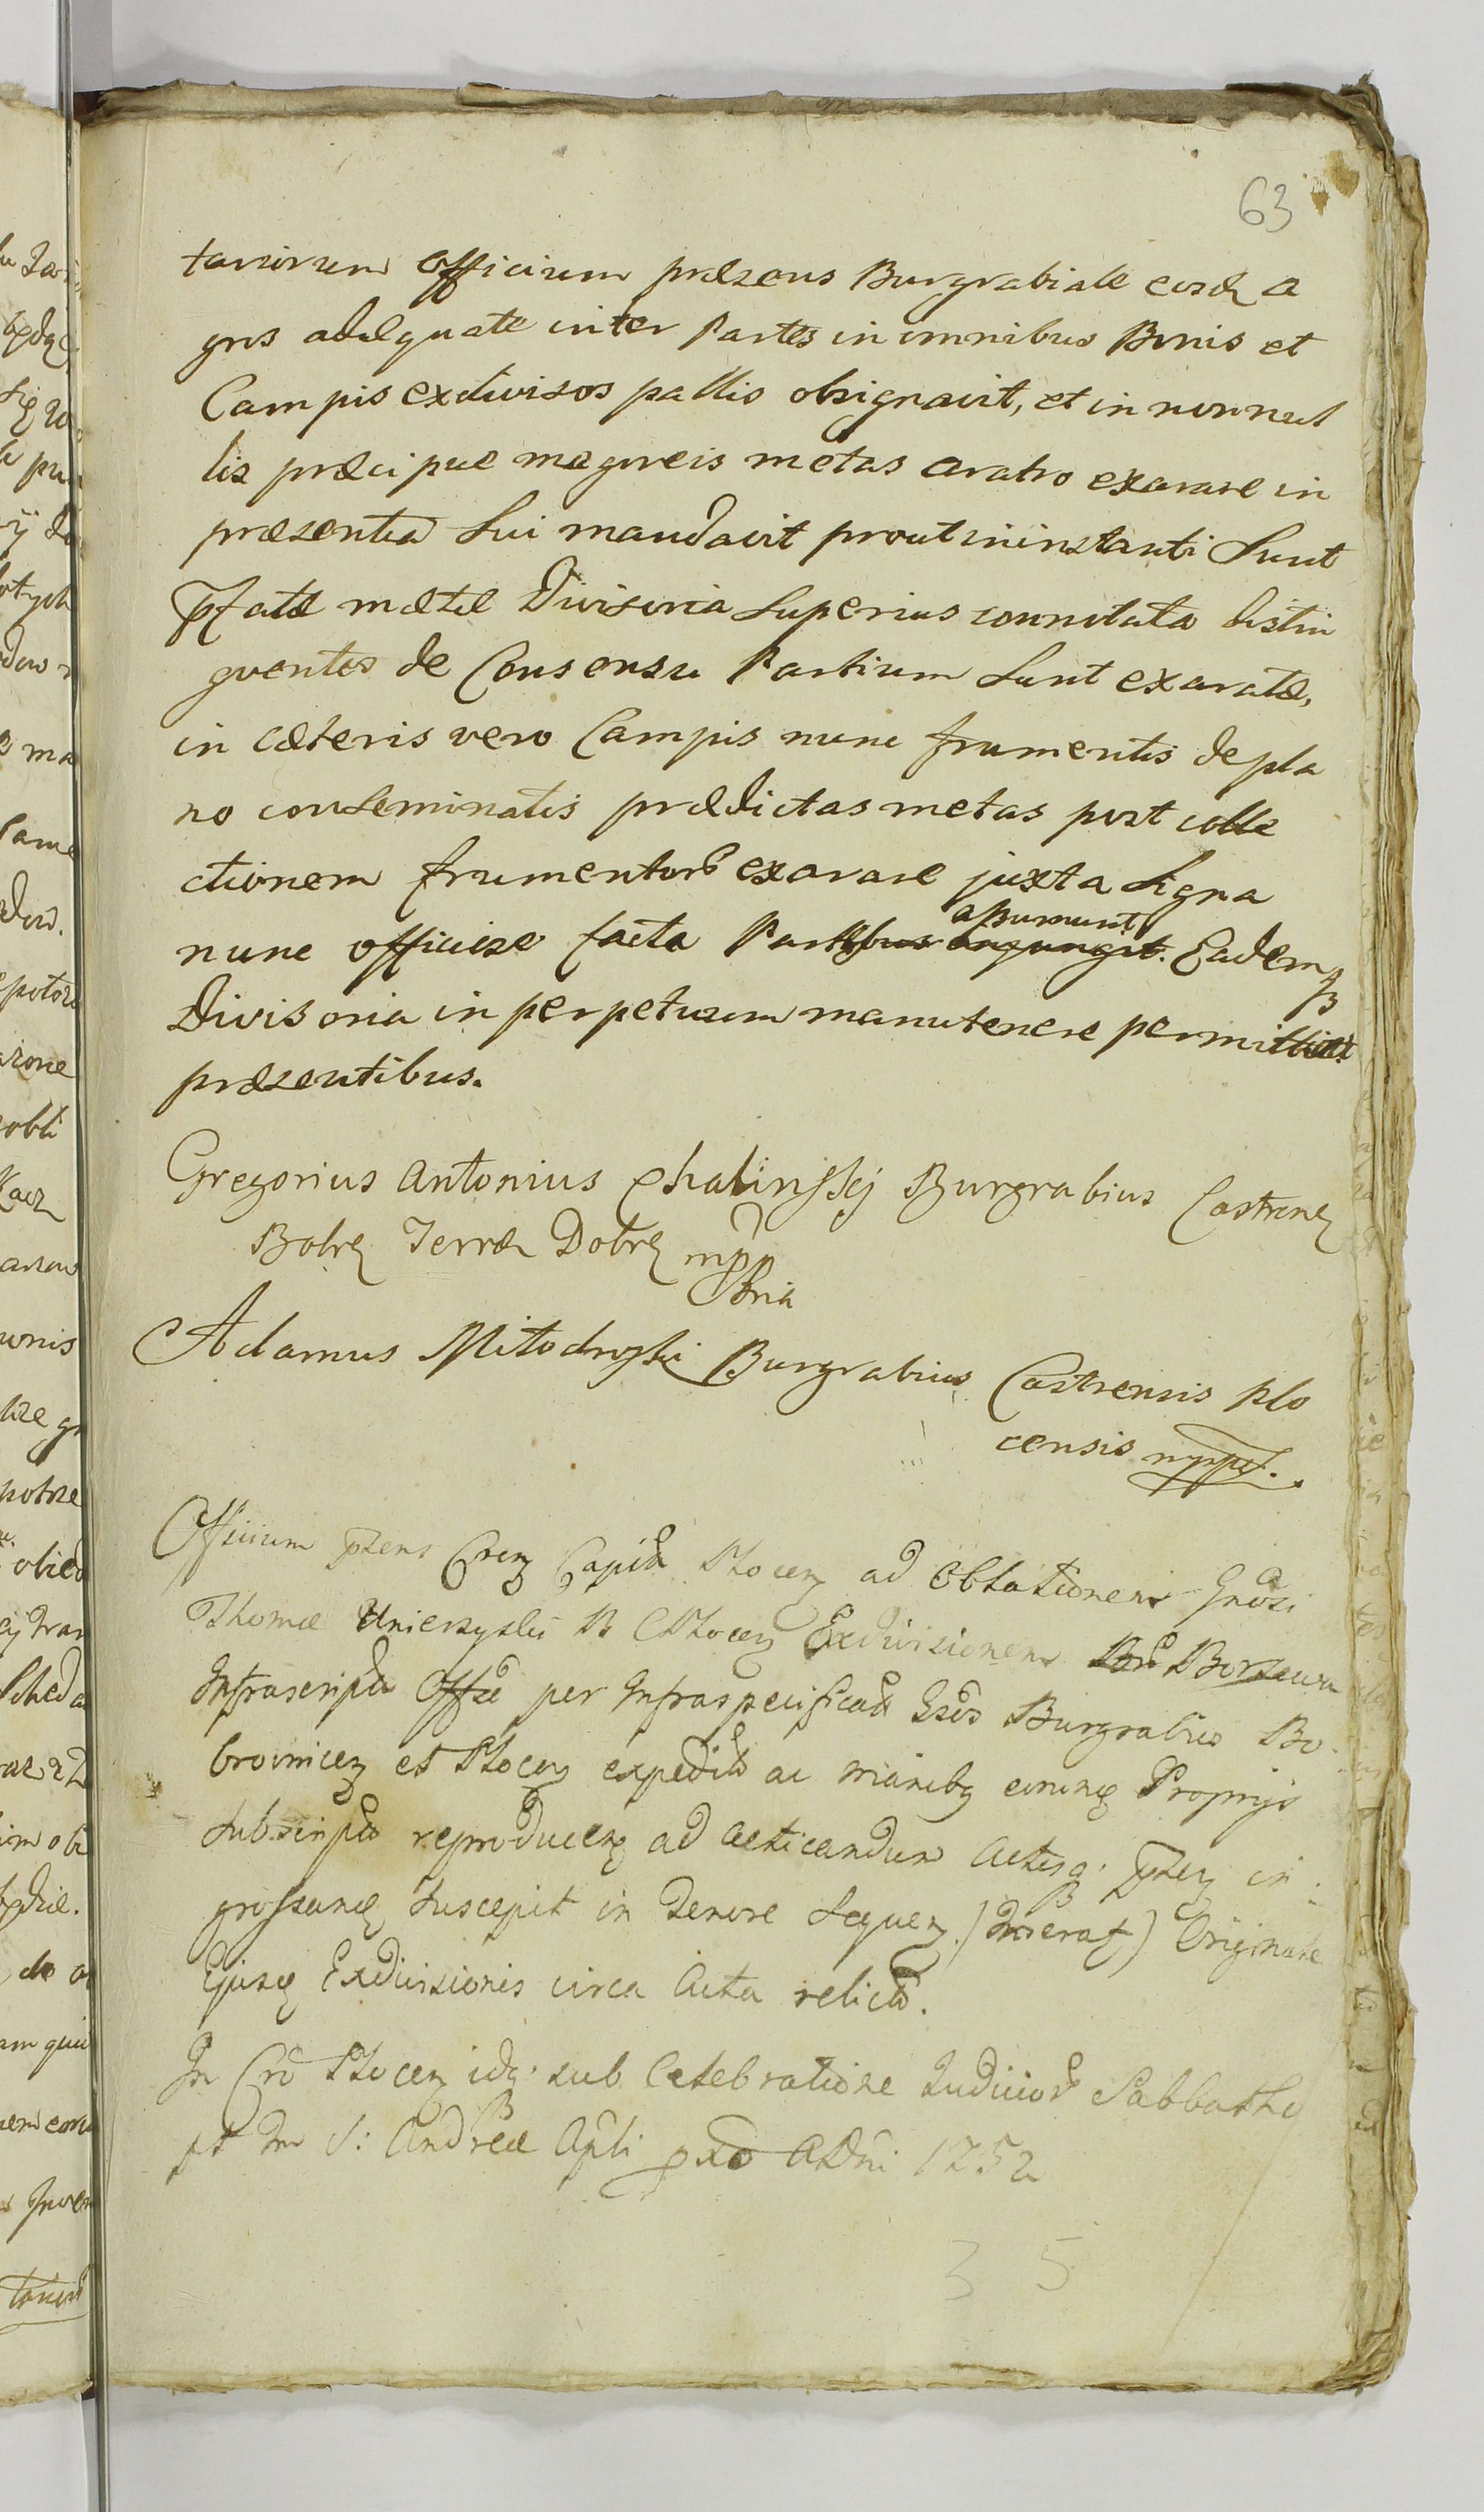 63
tariorum Officium præsens Burgrabiale eosd a
gros adæquate inter Partes in omnibus Bonis et
Campis exdivisos pallis obsignavit, et in nonnul
lis præcipue magoreis metas aratro exarare in
præsentia sui mandavit prout in instanti sunt
Pfatæ metæ Divisoria superius connotata distin
guentes de Consensu Partium sunt exaratæ,
in cæteris vero Campis nunc frumentis depla
no conseminatis prædictas metas post colle
ctionem frumentor exarare juxta signa
assumunt
nunc officiose facta Partibus injungit. Eademq
Divisoria in perpetuum manutenere permittit
præsentibus.
Gregorius Antonius Chalinski Burgrabius Castren
Bobr Terræ Dobr mpp
Adamus Mitodroski Burgrabius Castrensis Plo
censis mppr.
Officium pzens Cren Capit Plocen ad Oblationem Gnosi
Thomæ Unierzyski B C Plocen Exdivisionem Bon
Infrascript Offic per Infraspecificat Gsos Burgrabios Bo
brovnicen et Plocen expedit ac manibq eorunq Proprijs
subscript reproducen ad acticandum Actisq pzen in
grossandq suscepit in Tenore sequen (Inserat) Originale
Ejusq Exdivisionis circa Acta relict.
In Cro Plocen idq sub Celebratione Judicior Sabbatho
pt S: Andreæ Apli pxo ADni 1752
3 5